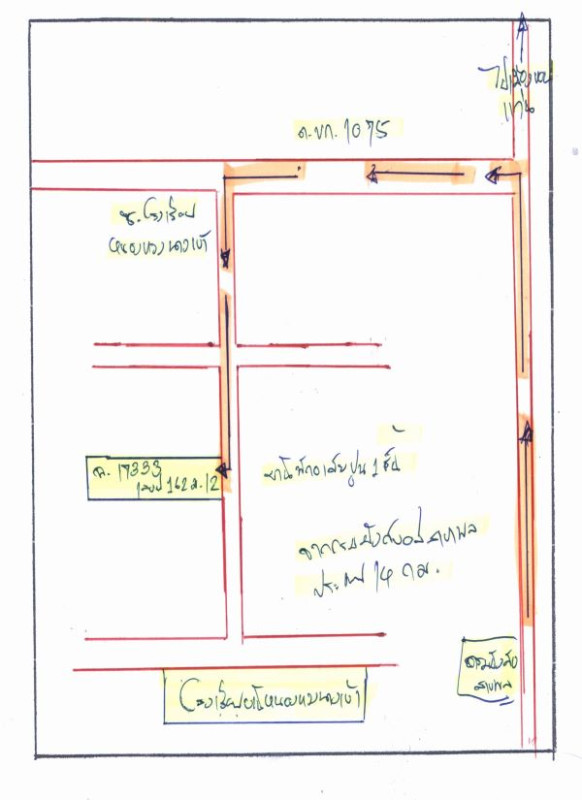 ไปเมืองขอน
แก่น
ถ.ขก. 1075
ซ.โรงเรียน
ฉ. 17333
เลขที่ 162 ม.12
บ้านพักอาศัยปูน 1 ชั้น
จากกรมบังคับคดีสาขาพล
ประมาณ 14 กม.
กรมบังคับ
สาขาพล